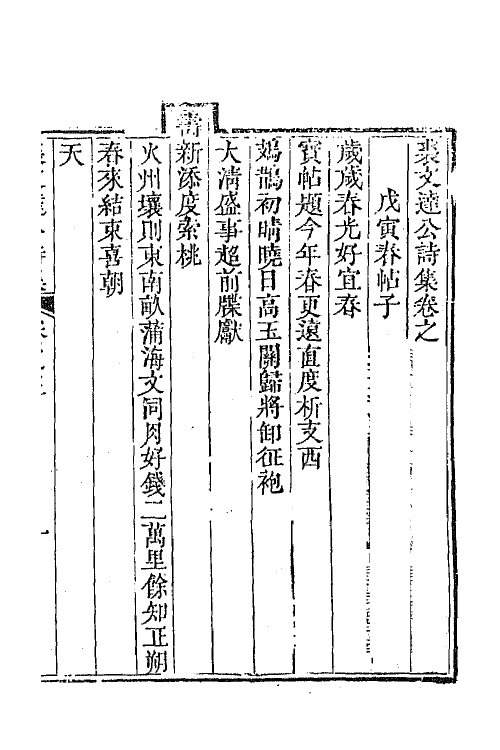 裘文達公詩集卷之
戊寅春帖子
歲歲春光好宜春
寶帖題今年春更遠直度析支西
鳷鵲初晴曉日高玉關歸將卸征袍
大淸盛事超前牒獻
壽新添度索桃
火州壤則東南畝蒲海文同肉好錢二萬里餘知正朔
春來結束喜朝
天